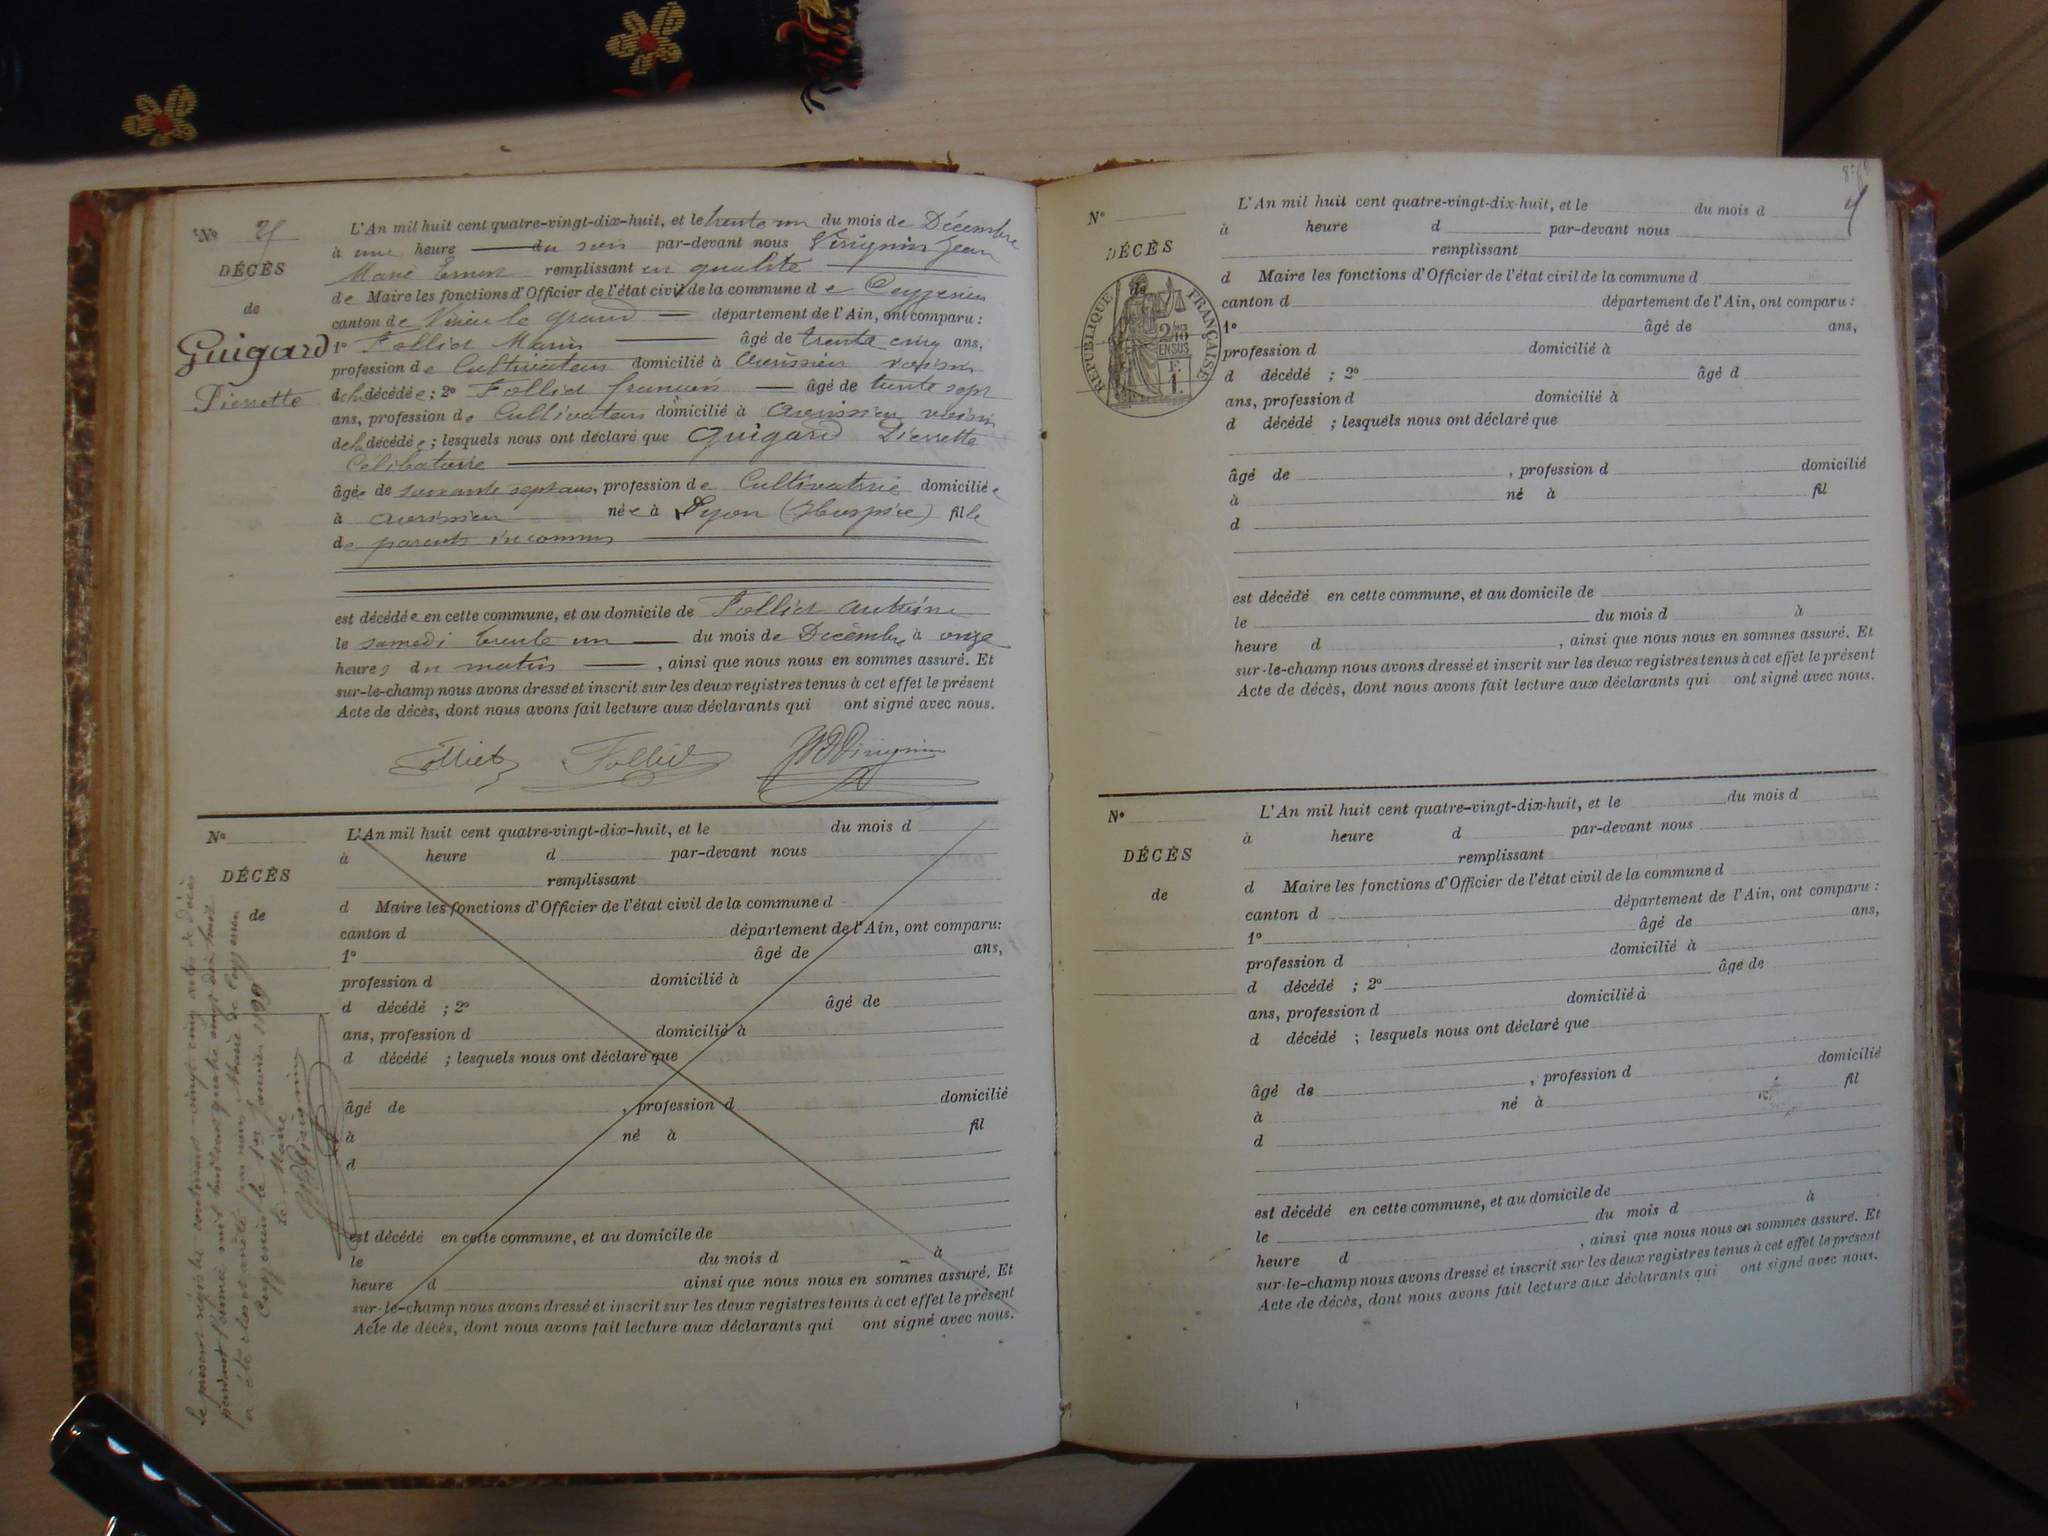 N° 25
DÉCÈS
de
Guigard
Pierrette
L'An mil huit cent quatre-vingt-dix-huit, et le trente un du mois de Décembre
à une heure du soir par-devant nous Virignin Jean
Marie Ernest remplissant en qualité
de Maire les fonctions d'Officier de l'état civil de la commune de Ceyzerieu
canton de Virieu le grand département de l'Ain, ont comparu :
1° Folliet Marin âgé de trente cinq ans,
profession de Cultivateur domicilié à Avrissieu voisin
de la décédée ; 2° Folliet françois âgé de trente sept
ans, profession de Cultivateur domicilié à Avrissieu voisin
de la décédée ; lesquels nous ont déclaré que Guigard Pierrette
Célibataire
âgée de soixante sept ans, profession de Cultivatrice domiciliée
à Avrissieu née à Lyon (Hospice) fille
de parents inconnus
est décédée en cette commune, et au domicile de Folliet Antoine
le samedi trente un du mois de Décembre à onze
heures du matin , ainsi que nous nous en sommes assuré. Et
sur-le-champ nous avons dressé et inscrit sur les deux registres tenus à cet effet le présent
Acte de décès, dont nous avons fait lecture aux déclarants qui ont signé avec nous.
Folliet Folliet Virignin
N°
DÉCÈS
de
L'An mil huit cent quatre-vingt-dix-huit, et le du mois d
à heure d par-devant nous
remplissant
d Maire les fonctions d'Officier de l'état civil de la commune d
canton d département de l'Ain, ont comparu:
1° âgé de ans,
profession d domicilié à
d décédé ; 2° âgé de
ans, profession d domicilié à
d décédé ; lesquels nous ont déclaré que
âgé de , profession d domicilié
à né à fil
d
est décédé en cette commune, et au domicile de
le du mois d à
heure d ainsi que nous nous en sommes assuré. Et
sur-le-champ nous avons dressé et inscrit sur les deux registres tenus à cet effet le présent
Acte de décès, dont nous avons fait lecture aux déclarants qui ont signé avec nous.
Le présent registre contenant vingt cinq actes de décès
pendant l'année mil huit cent quatre vingt dix huit
a été clos et arrêté par nous Maire de Ceyzerieu
Ceyzerieu le 1er Janvier 1899
Le Maire
Virignin
N°
DÉCÈS
de
RÉPUBLIQUE FRANÇAISE
2/10 EN SUS
F. 1.
L'An mil huit cent quatre-vingt-dix-huit, et le du mois d
à heure d par-devant nous
remplissant
d Maire les fonctions d'Officier de l'état civil de la commune d
canton d département de l'Ain, ont comparu :
1° âgé de ans,
profession d domicilié à
d décédé ; 2° âgé d
ans, profession d domicilié à
d décédé ; lesquels nous ont déclaré que
âgé de , profession d domicilié
à né à fil
d
est décédé en cette commune, et au domicile de
le du mois d à
heure d , ainsi que nous nous en sommes assuré. Et
sur-le-champ nous avons dressé et inscrit sur les deux registres tenus à cet effet le présent
Acte de décès, dont nous avons fait lecture aux déclarants qui ont signé avec nous.
N°
DÉCÈS
de
L'An mil huit cent quatre-vingt-dix-huit, et le du mois d
à heure d par-devant nous
remplissant
d Maire les fonctions d'Officier de l'état civil de la commune d
canton d département de l'Ain, ont comparu :
1° âgé de ans,
profession d domicilié à
d décédé ; 2° âge de
ans, profession d domicilié à
d décédé ; lesquels nous ont déclaré que
âgé de , profession d domicilié
à né à fil
d
est décédé en cette commune, et au domicile de
le du mois d à
heure d , ainsi que nous nous en sommes assuré. Et
sur-le-champ nous avons dressé et inscrit sur les deux registres tenus à cet effet le présent
Acte de décès, dont nous avons fait lecture aux déclarants qui ont signé avec nous.